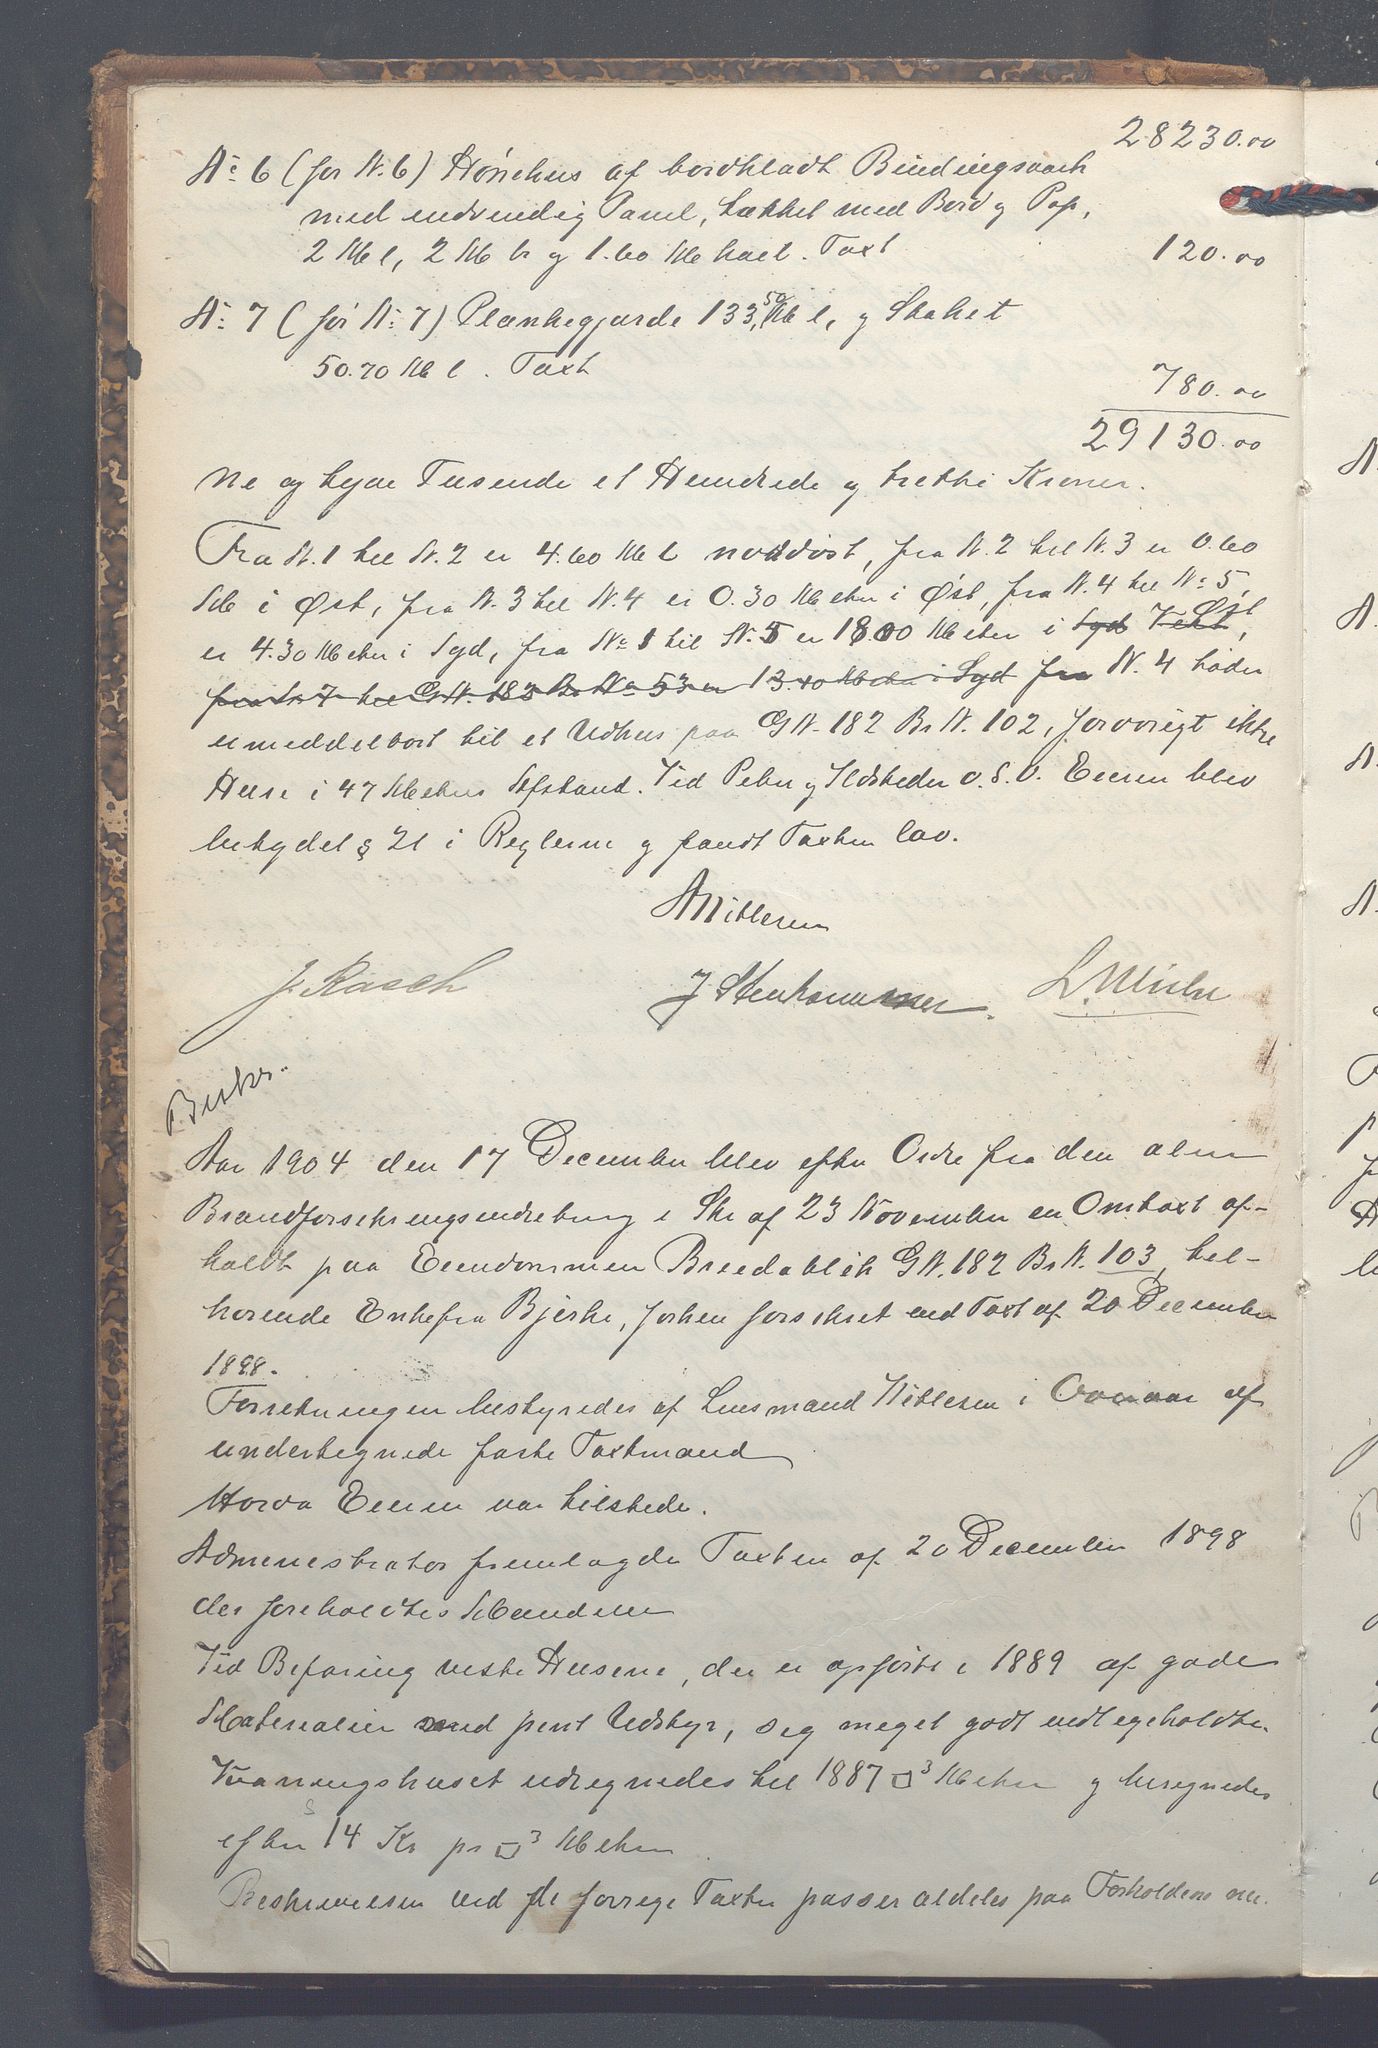 28230.00
No 6 (før N. 6) Hønsehus af bordklædt Bindingsværk
med indvendig Panel, tækket med Bord og Pap,
2 M l, 2 M br og 1.60 M høit. Taxt 120.00
No 7 (før No 7) Plankegjærde 133,50 M l, og Stakit
50.70 M l. Taxt
780.00
29130.00
Ni og tyve Tusende et Hundrede og tretti Kroner.
Fra N. 1 til N. 2 er 4.60 M l nordøst, fra N. 2 til N. 3 er 0.60
M i Øst, fra N. 3 til N. 4 er 0.30 Meter i Øst, fra N. 4 til No 5
er 4.30 Meter i Syd, fra No 1 til N. 5 er 18.00 Meter i Syd Vest Øst,
fra N. 7 til GN. 182 Br No 53 er 13.40 Meter i Syd fra N. 4 støder
umiddelbart til et Udhus paa GN. 182 Br N. 102, forøvrigt ikke
Huse i 47 Meters Afstand. Ved Piber og Ildsteder o.s.v. Eieren blev
betydet § 21 i Reglerne og fandt Taxten lav.
A Nitlesen
J. Rasch J Stenhammer. L. Ulsten
P. Beskr.
Aar 1904 den 17 December blev efter Ordre fra den alm
Brandforsikringsindretning i Skr af 23 November en Omtaxt af-
holdt paa Eiendommen Breidablik GN. 182 Br N. 103, til-
hørende Enkefru Bjerke, forhen forsikret ved Taxt af 20 December
1898.
Forretningen bestyredes af Lensmand Nitlesen i Overvær af
undertegnede faste Taxtmænd
Hos Eieren var tilstede.
Administrator fremlagde Taxten af 20 December 1898
der foreholdtes Mændene
Ved Befaring viste Husene, der er opført i 1889 af gode
Materialier med pent Udstyr, seg meget godt vedligeholdte.
Vaaningshuset udregnedes til 1887 □3 Meter og beregnedes
efter 14 Kr pr □3 Meter
Beskrivelsen ved de forrige Taxter passer aldeles paa Forholdene nu.